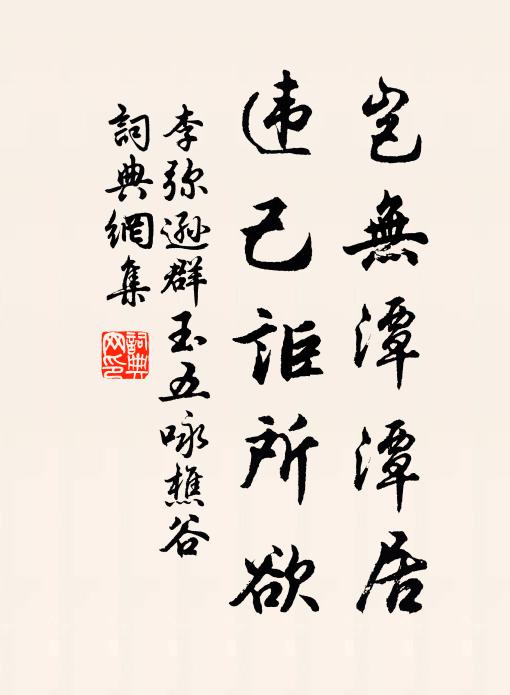 豈無潭潭居
违己詎所欲
李弥遜群玉五咏樵谷
詞典網集
詞典
网印